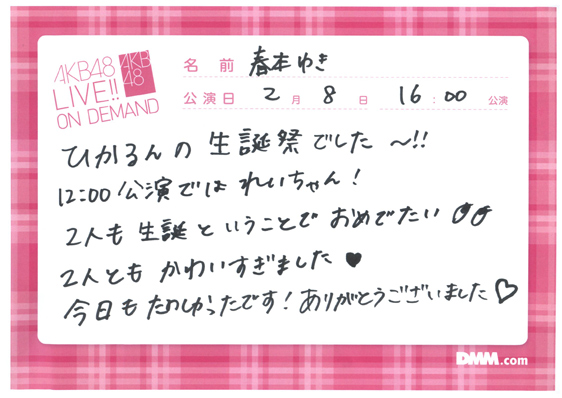 AKB48
LIVE!!
ON DEMAND
AKB
48
名前 春本ゆき
公演日 2月8日 16:00公演
ひかるんの生誕祭でした〜!!
12:00公演ではれいちゃん!
2人も生誕ということでおめでたい
2人ともかわいすぎました♥
今日もたのしかったです!ありがとうございました♡
DMM.com